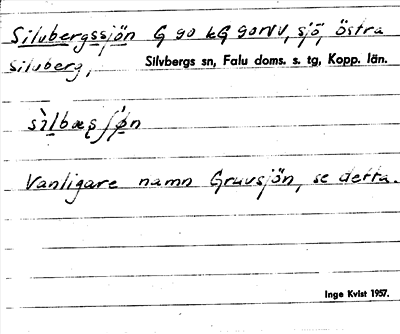 Silvbergssjön G 90 kG 90NV, sjö, östra
Silvberg, Silvbergs sn, Falu doms. s. tg, Kopp. län.
Vanligare namn Gruvsjön, se detta.
Inge Kvist 1957.